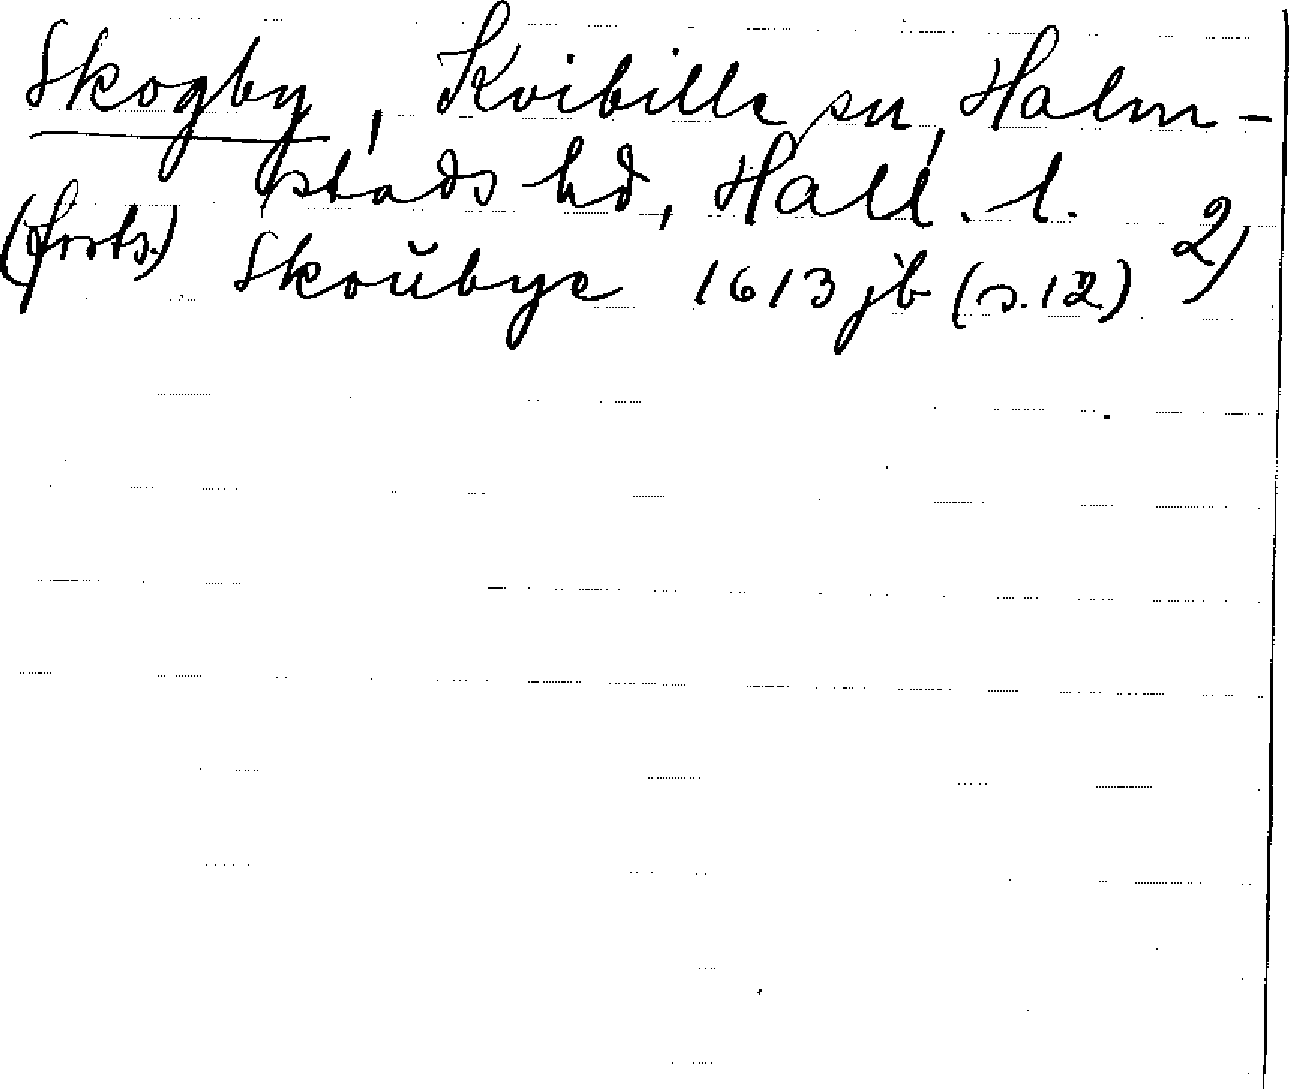 Skogby, Kvibille sn, Halm-
stads hd, Hall. l.
(forts.) Skoŭbye 1613 jb (s. 12) 2)